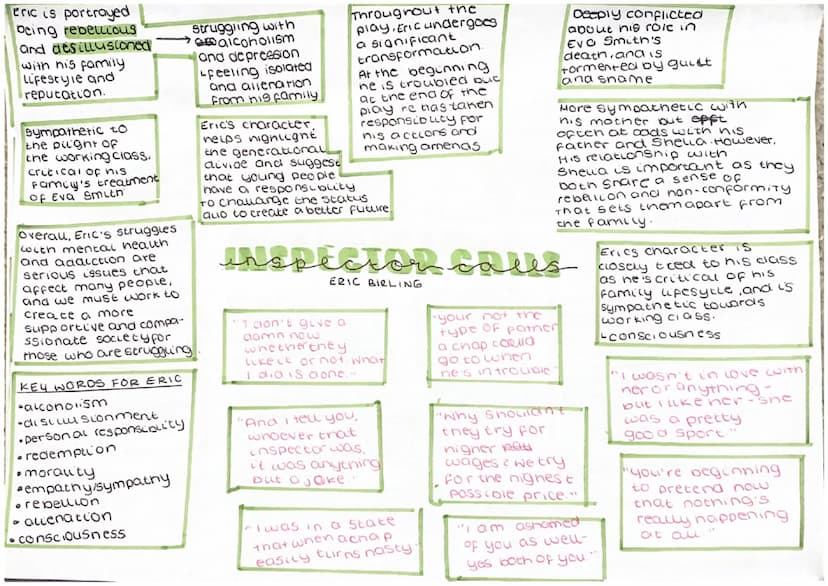 Eric is portrayed
being rebellious
and desillusioned
with his family
lifestyle and
reputation.
struggling with
alcoholism
and depression
feeling isolated
and alienation
from his family
Throughout the
play, Eric undergoes
a significant
transformation.
At the beginning
he is troubled but
at the end of the
play he has taken
responsibility for
his actions and
making amends
Deeply conflicted
about his role in
Eva Smith's
death, and is
tormented by guilt
and shame
Sympathetic to
the plight of
the working class,
critical of his
family's treatment
of Eva Smith
Eric's character
helps highlight
the generational
divide and suggest
that young people
have a responsiblity
to challange the status
quo to create a better future
More sympathetic with
his mother but
often at odds with his
father and Sheila. However,
His relationship with
Sheila is important as they
both share a sense of
rebelion and non-conformity
that sets them apart from
the family.
Overall, Eric's struggles
with mental health
and addiction are
serious issues that
affect many people,
and we must work to
create a more
supportive and compa-
ssionate society for
those who are struggling
INSPECTOR CALLS
inspector calls
ERIC BIRLING
Erics character is
closely tied to his class
as he's critical of his
family lifesytle, and is
sympathetic towards
working class.
consciousness
"I don't give a
damn now
whether they
like it or not what
I did is done."
"your not the
type of father
a chap could
go to when
he's in trouble"
"I wasn't in love with
her or anything -
but I like her - she
was a pretty
good sport."
KEY WORDS FOR ERIC
• alcoholism
• disillusionment
• personal responsiblity
• redemption
• morality
• empathy/sympathy
• rebellion
• alienation
• consciousness
"And I tell you,
whoever that
inspector was,
it was anything
but a joke."
"Why shouldn't
they try for
higher
wages? We try
for the highest
possible price."
"You're beginning
to pretend now
that nothing's
really happening
at all."
"I was in a state
that when a chap
easily turns nasty."
"I am ashamed
of you as well-
yes both of you"